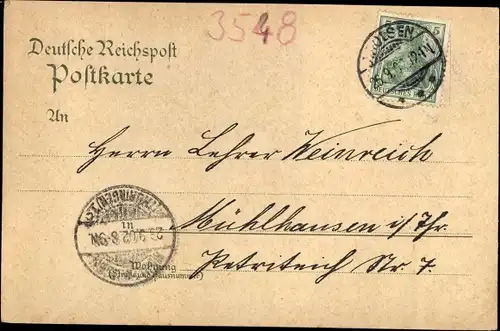 3548
Deutsche Reichspost
Postkarte
An
Herrn Lehrer Weinreich
Mühlhausen i/Thr.
Petriteich Str. 7.
Wohnung
(Straße und Hausnummer)